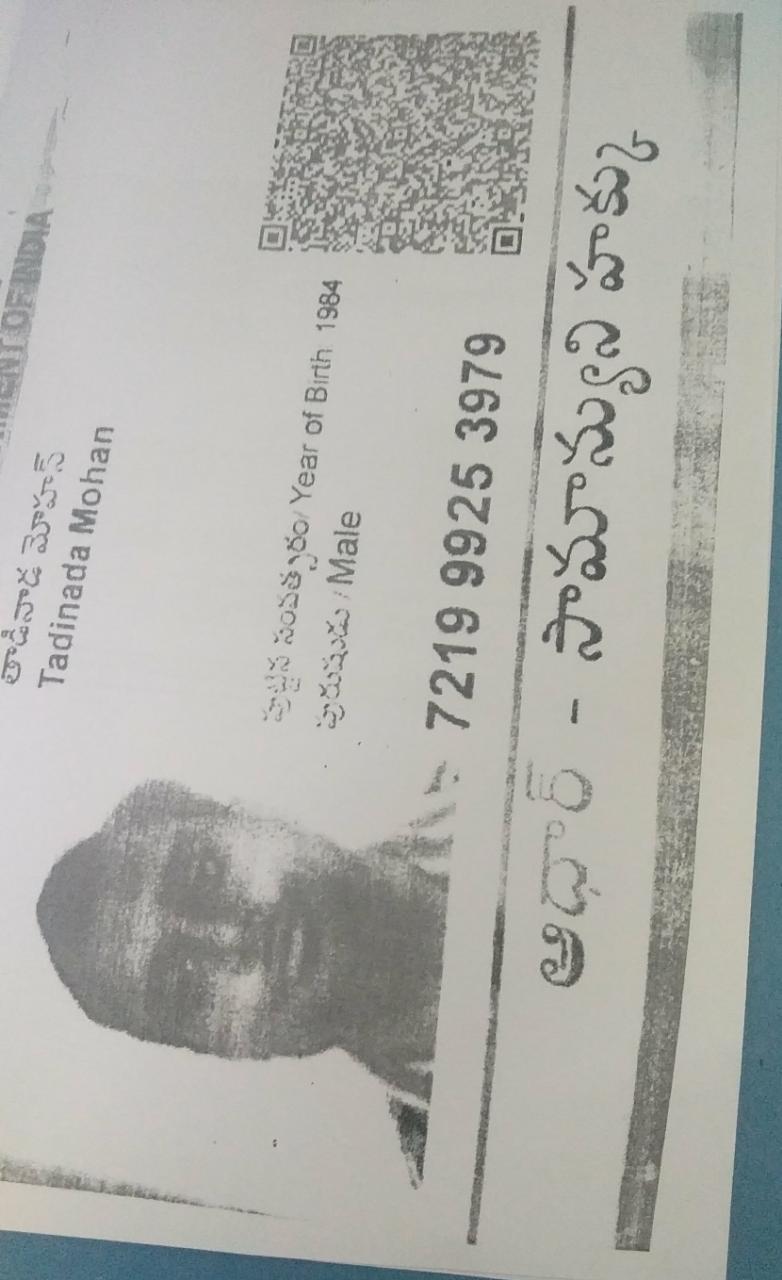 OF INDIA
తాడినాడ మోహన్
Tadinada Mohan
పుట్టిన సంవత్సరం/ Year of Birth 1984
పురుషుడు / Male
7219 9925 3979
ఆధార్ - సామాన్యుని హక్కు